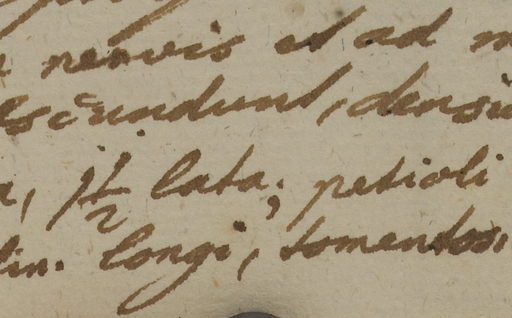 nervis et ad m
escundunt, densiu
a, 1 1/2 lata; petioli
lin. longi, tomentosi